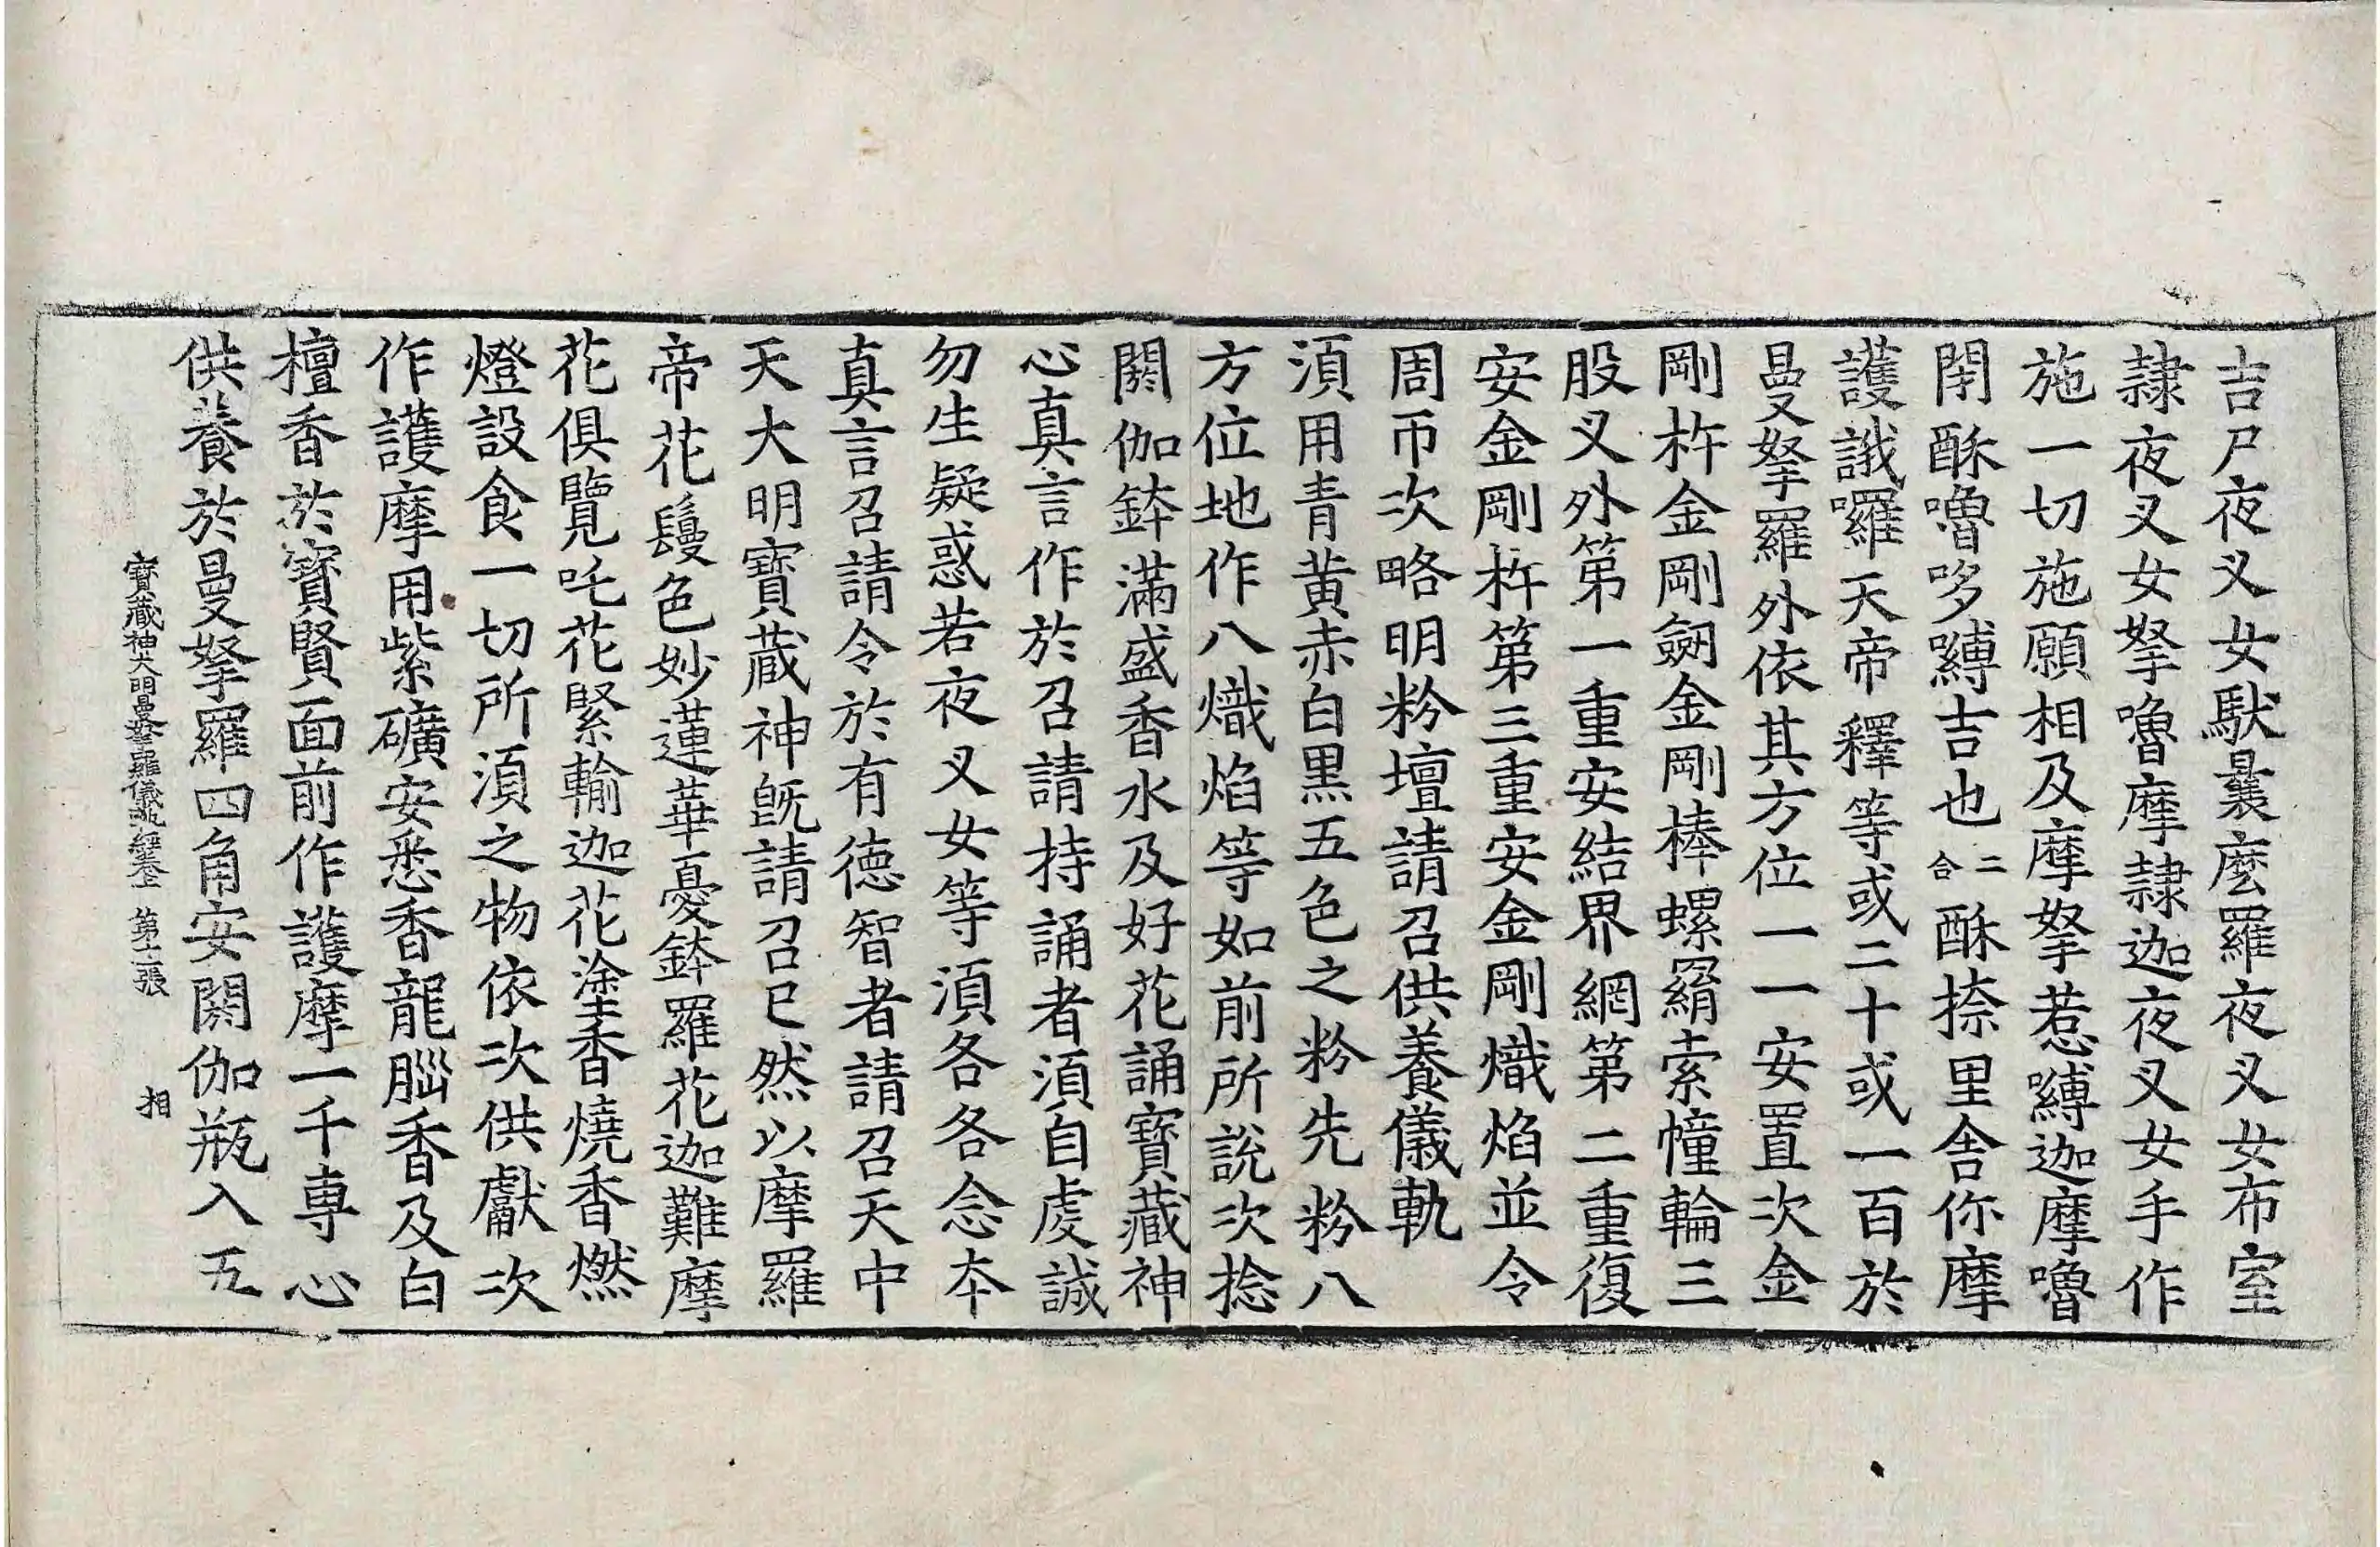 吉尸夜叉女馱曩麽羅夜叉女布室
隷夜叉女拏嚕摩隷迦夜叉女手作
施一切施願相及摩拏惹嚩迦摩嚕
閉酥嚕哆嚩吉也二合酥捺里舎你摩
護誐囉天帝釋等或二十或一百於
曼拏羅外依其方位一一安置次金
剛杵金剛劒金剛棒螺羂索幢輪三
股叉外第一重安結界網第二重復
安金剛杵第三重安金剛熾焰並令
周帀次略明粉壇請召供養儀軌
湏用青黄赤白黒五色之粉先粉八
方位地作八熾焰等如前所說次捻
閼伽鉢滿盛香水及好花誦寳藏神
心真言作於召請持誦者湏自虔誠
勿生疑惑若夜叉女等湏各各念本
真言召請令於有徳智者請召天中
天大明寳藏神旣請召已然以摩羅
帝花鬘色妙蓮華憂鉢羅花迦難摩
花俱覽吒花緊輸迦花塗香燒香燃
燈設食一切所湏之物依次供獻次
作護摩用紫礦安悉香龍腦香及白
檀香於寳賢面前作護摩一千専心
供養於曼拏羅四角安閼伽瓶入五
寳藏神大明曼拏羅儀軌經卷上 第十二張 相